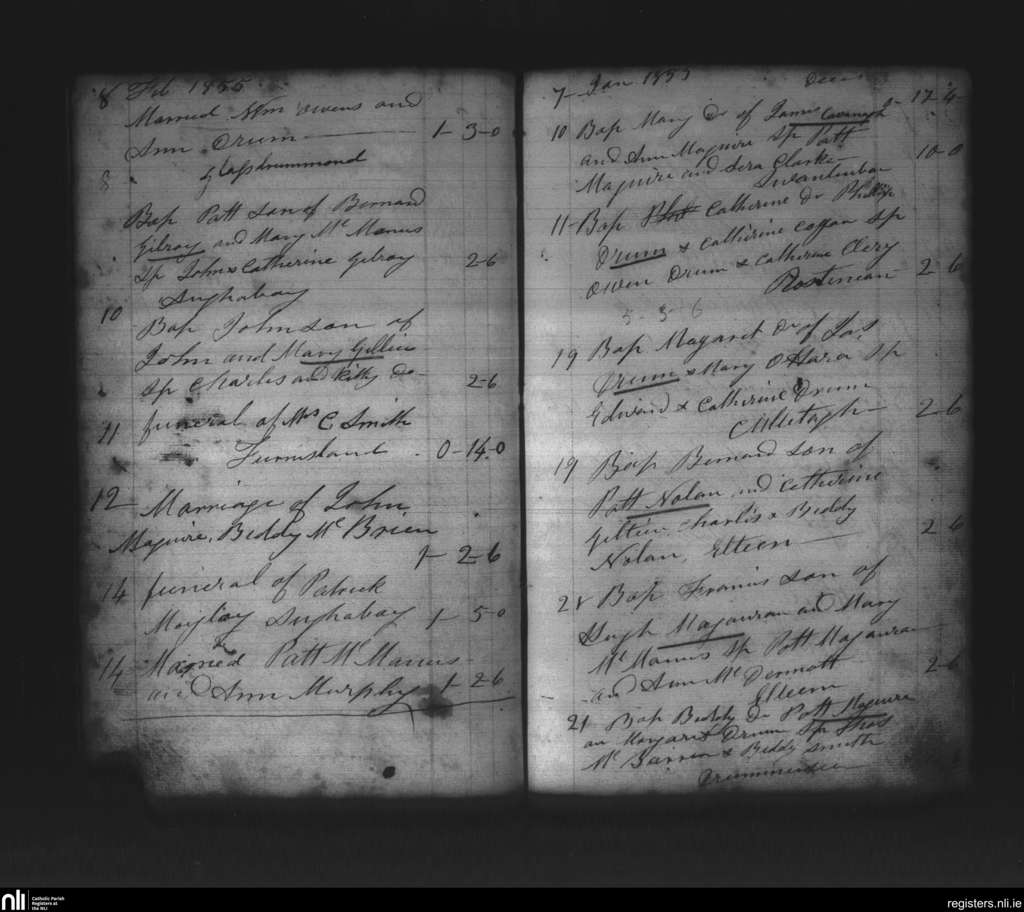 8 Feb 1855
Married Wm Owens and
Ann Drum 1-3-0
8 Glassdrummond
Bap Patt Son of Bernard
Gilroy and Mary Mc Manus
Sp John & Catherine Gilroy 2-6
Aughabay
10
Bap John son of
John and Mary Gillin
Sp Charles and Kitty Do 2-6
11 funeral of Mrs C Smith
0-14-0
12 Marriage of John
Maguire, Biddy Mc Brien
1-2-6
14 funeral of Patrick
Aughabay 1-5-0
14 Married Patt Mc Manus
and Ann Murphy 1-2-6
7 Jan 1855
17-4
10 Bap Mary Dr of James Cavanagh
and Ann Maguire Sp Patt
Maguire and Sera Clarke 10-0
11 Bap Catherine Dr Phillip
Drum & Catherine Sp
Owen Drum & Catherine Clery
2-6
5-3-6
19 Bap Magaret Dr of Jas
Drum & Mary O Hara Sp
Edward & Catherine Drum
2-6
19 Bap Bernard son of
Patt Nolan and Catherine
Charlis & Biddy
Nolan, Elteen 2-6
21 Bap Francis son of
Hugh Magauran and Mary
Mc Manus Sp Patt Magauran
and Ann Mc Dermott 2-6
Elteen
21 Bap Biddy Dr Patt Maguire
an Margaret Drum Sp Thos
Mc & Biddy Smith
nli
Catholic Parish
Registers at
the NLI
registers.nli.ie